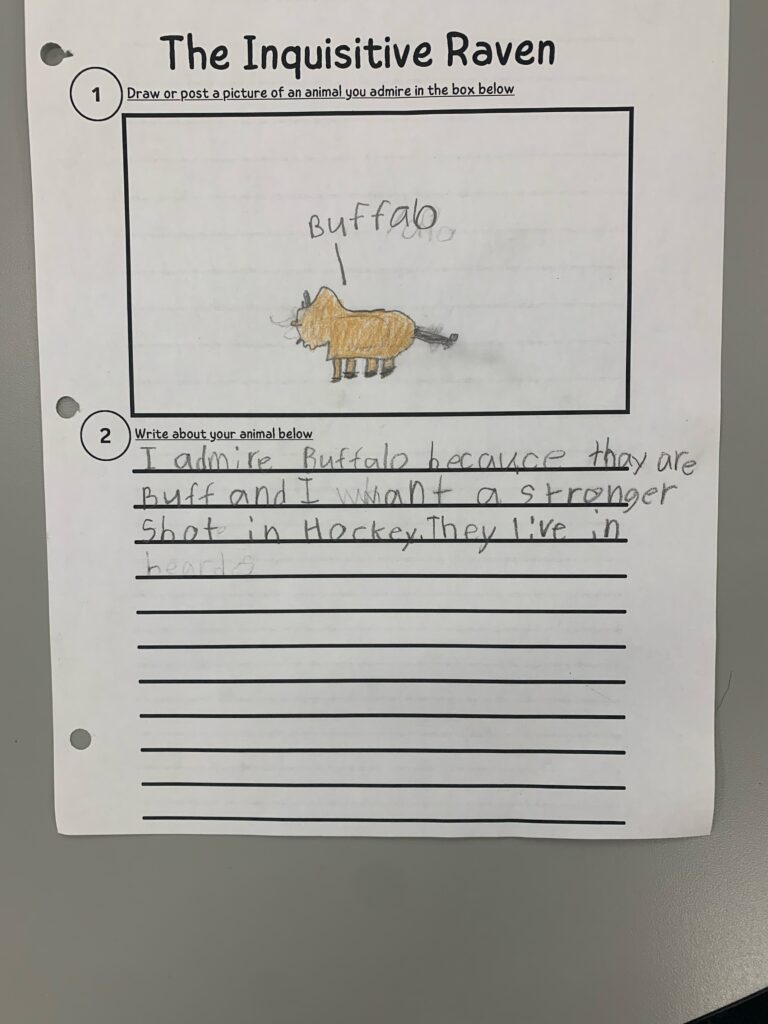 The Inquisitive Raven
1
Draw or post a picture of an animal you admire in the box below
Buffalo
2
Write about your animal below
I admire Buffalo becauce thay are
Buff and I whant a stronger
Shot in Hockey. They live in
heards